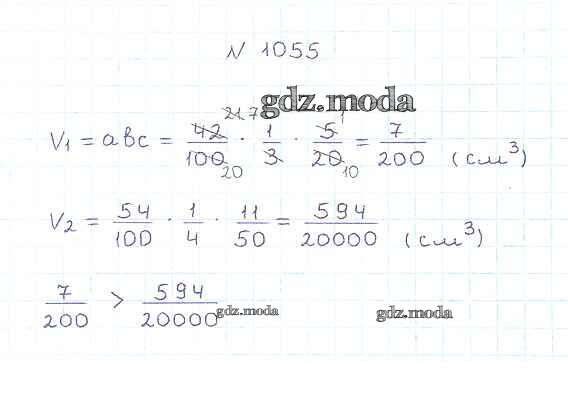 N 1055
gdz.moda
V₁ = abc = 42/100 · 1/3 · 5/20 = 7/200 (см³)
21 7 1
20 10
V₂ = 54/100 · 1/4 · 11/50 = 594/20000 (см³)
7/200 > 594/20000
gdz.moda gdz.moda